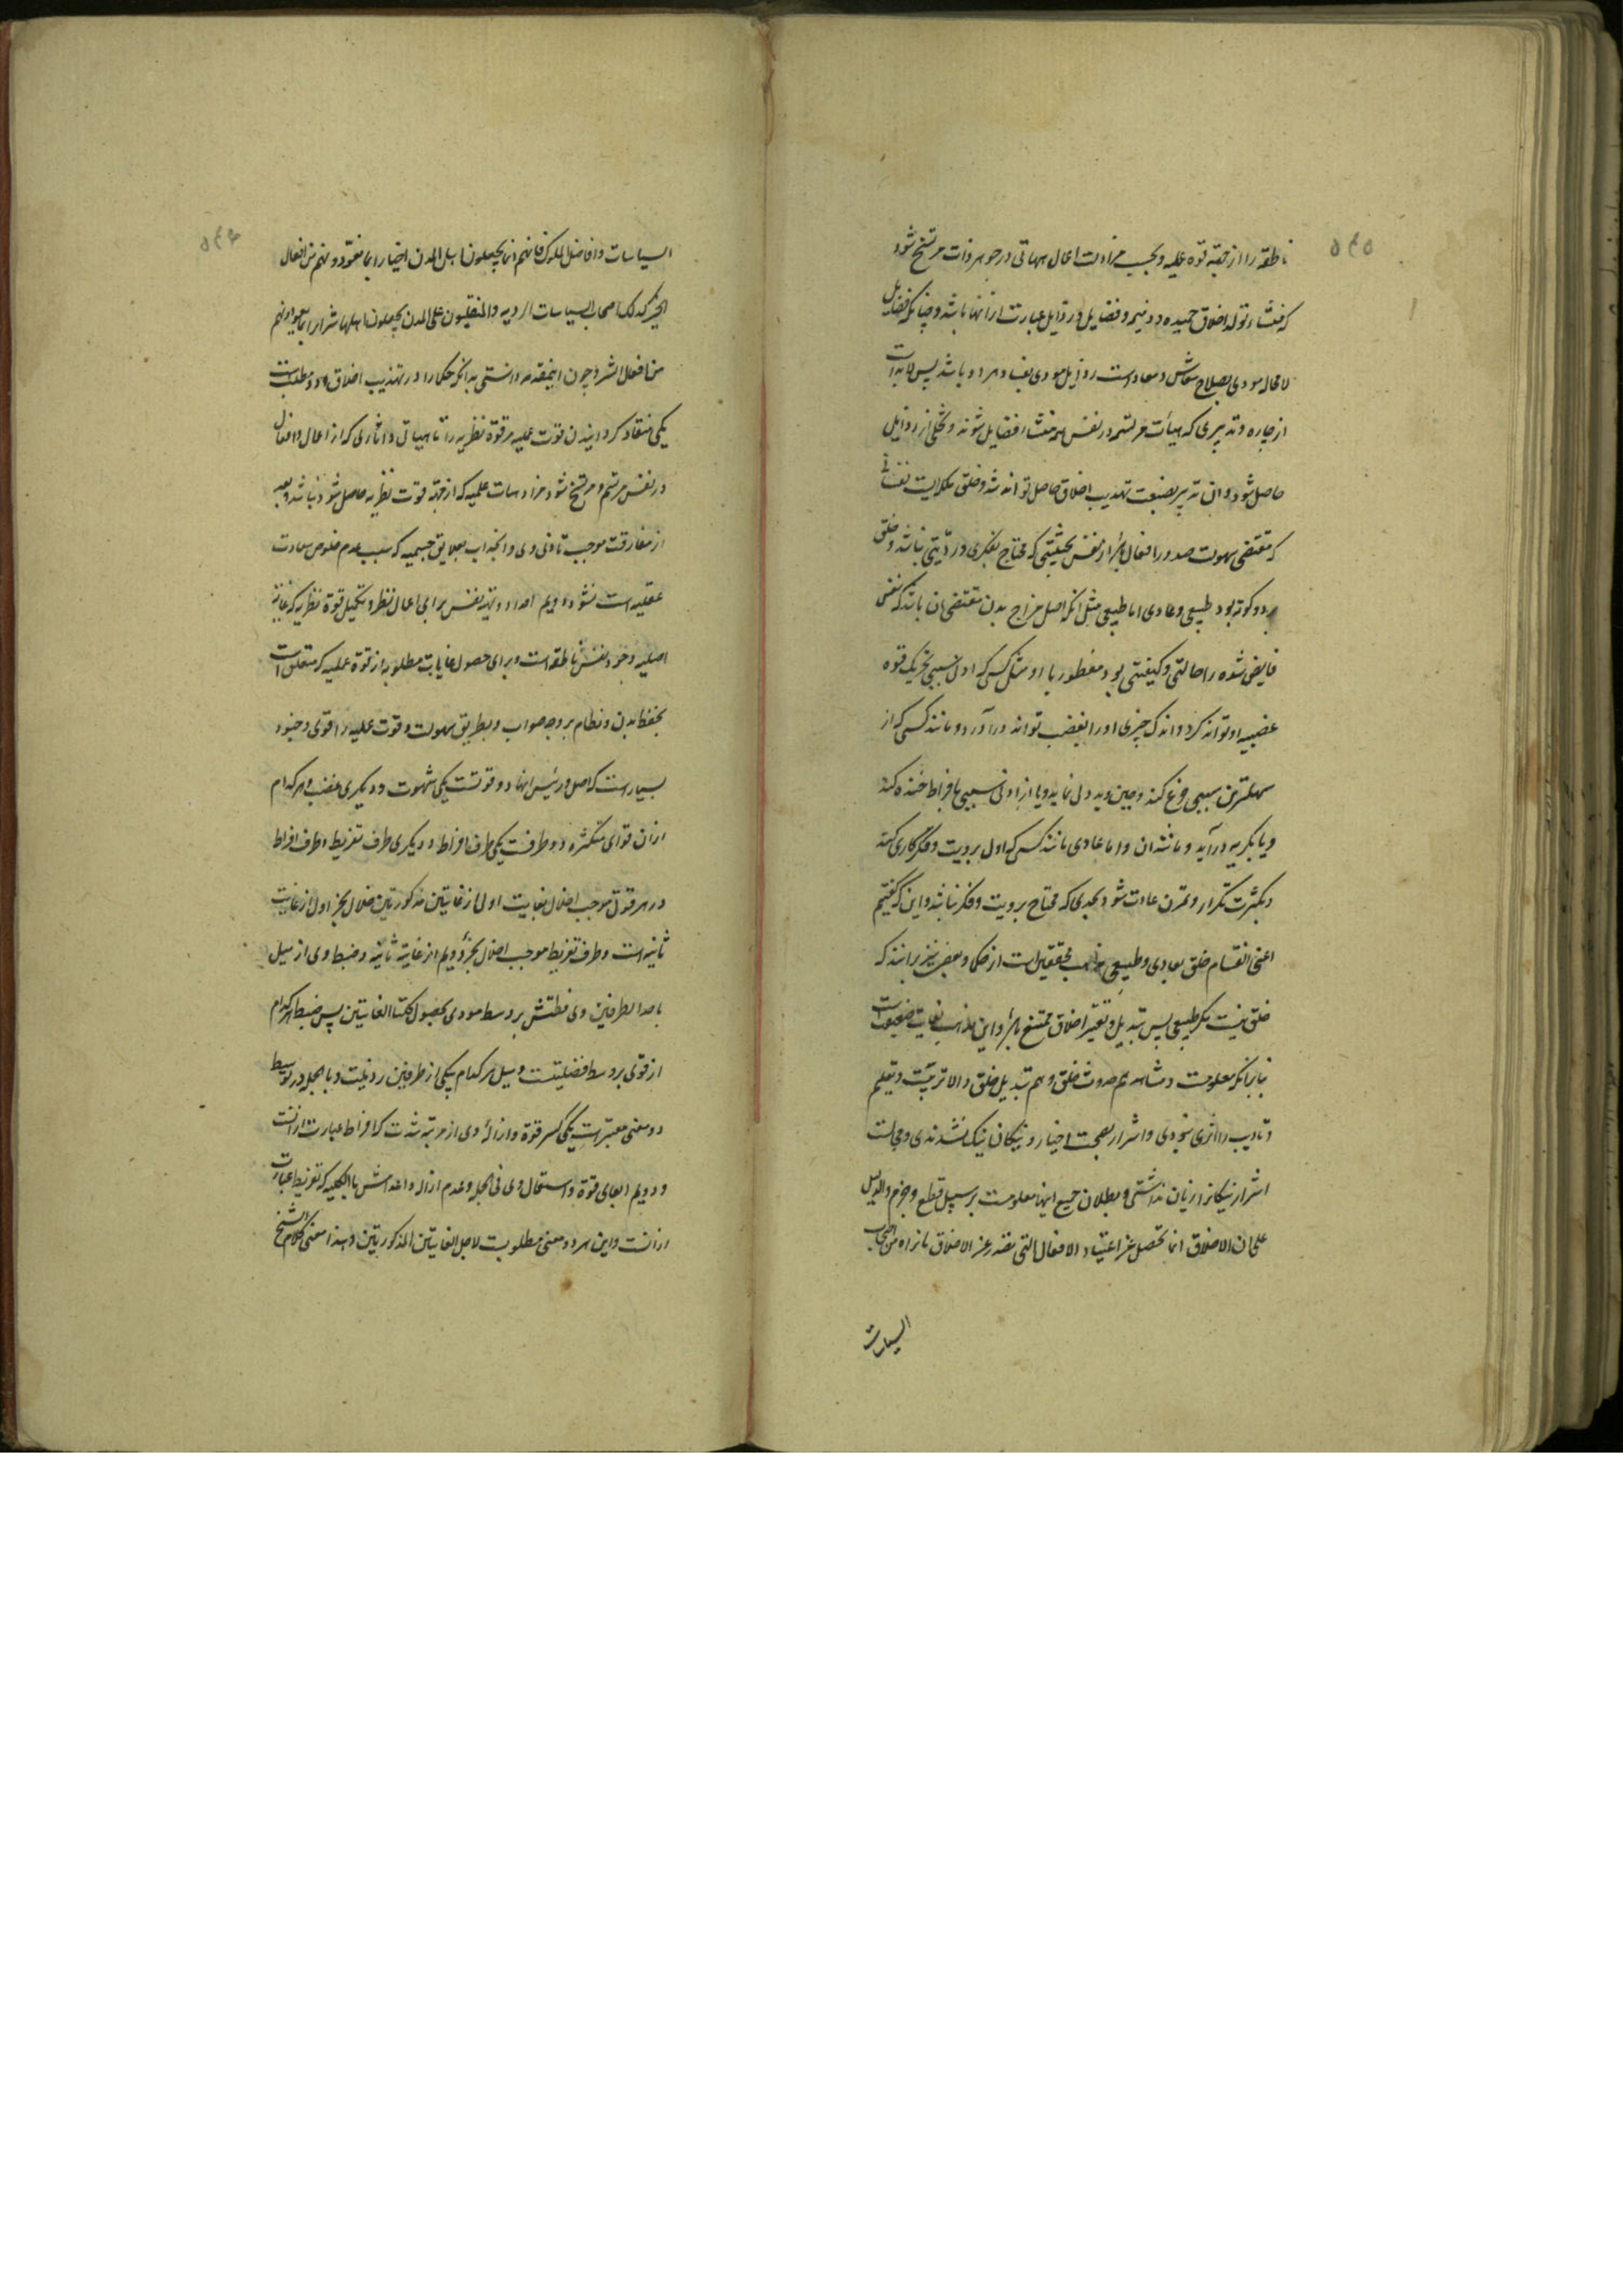 ۵۴۵
ناطقه را از جهة قوه عملیه و بحسب مزاولت اعمال هیاتی در جوهر ذات مرتسخ شود
که منشاء تولد اخلاق حمیده و ذمیمه و فضایل و رذایل عبارت از آنها باشد و چنانکه فضایل
لا محاله مودی بصلاح معاش و معاد است رذایل مودی بفساد هر دو باشد پس لا بد است
از چاره و تدبیری که هیأت مرتسمه در نفس همه منشاء فضایل شوند و تخلی از رذایل
حاصل شود و ان تدبیر بصنعت تهذیب اخلاق حاصل تواند شد و خلق ملکه ایست نفسانی
که مقتضی سهولت صدور افعال باشد از نفس بحیثیتی که محتاج بفکری و رویتی نباشد و خلق
بر دو گونه بود طبیعی و عادی اما طبیعی مثل انکه اصل مزاج بدن مقتضی ان باشد که نفس
فایض شده را حالتی و کیفیتی بود مفطور با او مثل کسی که ادنی سببی تحریک قوه
غضبیه او تواند کرد و اندک چیزی او را بغضب تواند در آورد و مانند کسی که از
سهلترین سببی فزع کند و جبن و بد دلی نماید و یا از ادنی سببی بافراط خنده کند
و یا بگریه درآید و مانند ان و اما عادی مانند کسی که اول برویت و فکر کاری کند
و بکثرت تکرار و تمرن عادت شود بحدی که محتاج برویت و فکر نباشد و این که گفتیم
اعنی انقسام خلق بعادی و طبیعی مذهب محققین است از حکما و بعضی نیز برانند که
خلق نیست مگر طبیعی پس تبدیل و تغییر اخلاق ممتنع باشد و این مذهب بغایت ضعیف است
بنابر انکه معلومست و مشاهد هم حدوث خلق و هم تبدیل خلق و الا تربیت و تعلیم
و تادیب را اثری نبودی و اشرار بصحبت اخیار و نیکان نیک نشدندی و مجالست
اشرار نیکانرا زیان نداشتی و بطلان جمیع اینها معلومست بر سبیل قطع و جزم و الدلیل
علی ان الاخلاق انما تحصل عن اعتیاد الافعال التی تصدر عن الاخلاق ما نراه من اصحاب
السیاسات
۵۴۶
السیاسات و افاضل الملوک فانهم انما یجعلون اهل المدن اخیارا بما یعودونهم من افعال
الخیر کذلک اصحاب السیاسات الردیه و المتغلبون علی المدن یجعلون اهلها اشرارا بما یعودونهم
من افعال الشر و چون اینمقدمه دانستی بدانکه حکما را در تهذیب اخلاق دو مطلب است
یکی منقاد گردانیدن قوت عملیه مر قوة نظریه را تا هیأتی و اثاری که از اعمال و افعال
در نفس مرتسم و مرتسخ شود مزاد هیأت علمیه که از جهة قوت نظریه حاصل شود نباشد و بعد
از مفارقت موجب تاذی وی و انجذاب بعلایق جسمیه که سبب عدم خلوص سعادت
عقلیه است نشود دویم امداد و تهیه نفس برای اعمال نظر و تکمیل قوة نظریه که غایة
اصلیه وجود نفس ناطقه است و برای حصول غایات مطلوبه از قوة عملیه که متعلق است
بحفظ بدن و نظام بر وجه صواب و بطریق سهولت و قوت عملیه را قوی و جنود
بسیارست که اصل و رئیس انها دو قوتست یکی شهوت و دیگری غضب و هر کدام
ازان قوای متکثره دو طرفست یکی طرف افراط و دیگری طرف تفریط و طرف افراط
در هر قوتی موجب اخلال بغایت اولی از غایتین مذکورتین و اخلال بجزء اول از غایت
ثانیه است و طرف تفریط موجب اخلال بجزء دویم از غایة ثانیه و ضبط وی از میل
باحد الطرفین و محافظتش بر وسط مودی بحصول کلتا الغایتین پس ضبط هر کدام
از قوی بر وسط فضیلتست و میل هر کدام بیکی از طرفین رذیلت و بالجمله در توسیط
دو معنی معتبر است یکی کسر قوة و ازاله وی از مرتبه شدت که افراط عبارت ازانست
و دویم ابقای قوة و استعمال وی فی الجمله و عدم ازاله و اعدامش بالکلیه که تفریط عبارت
ازانست و این هر دو معنی مطلوبست لاجل الغایتین المذکورتین و هذا معنی کلام الشیخ